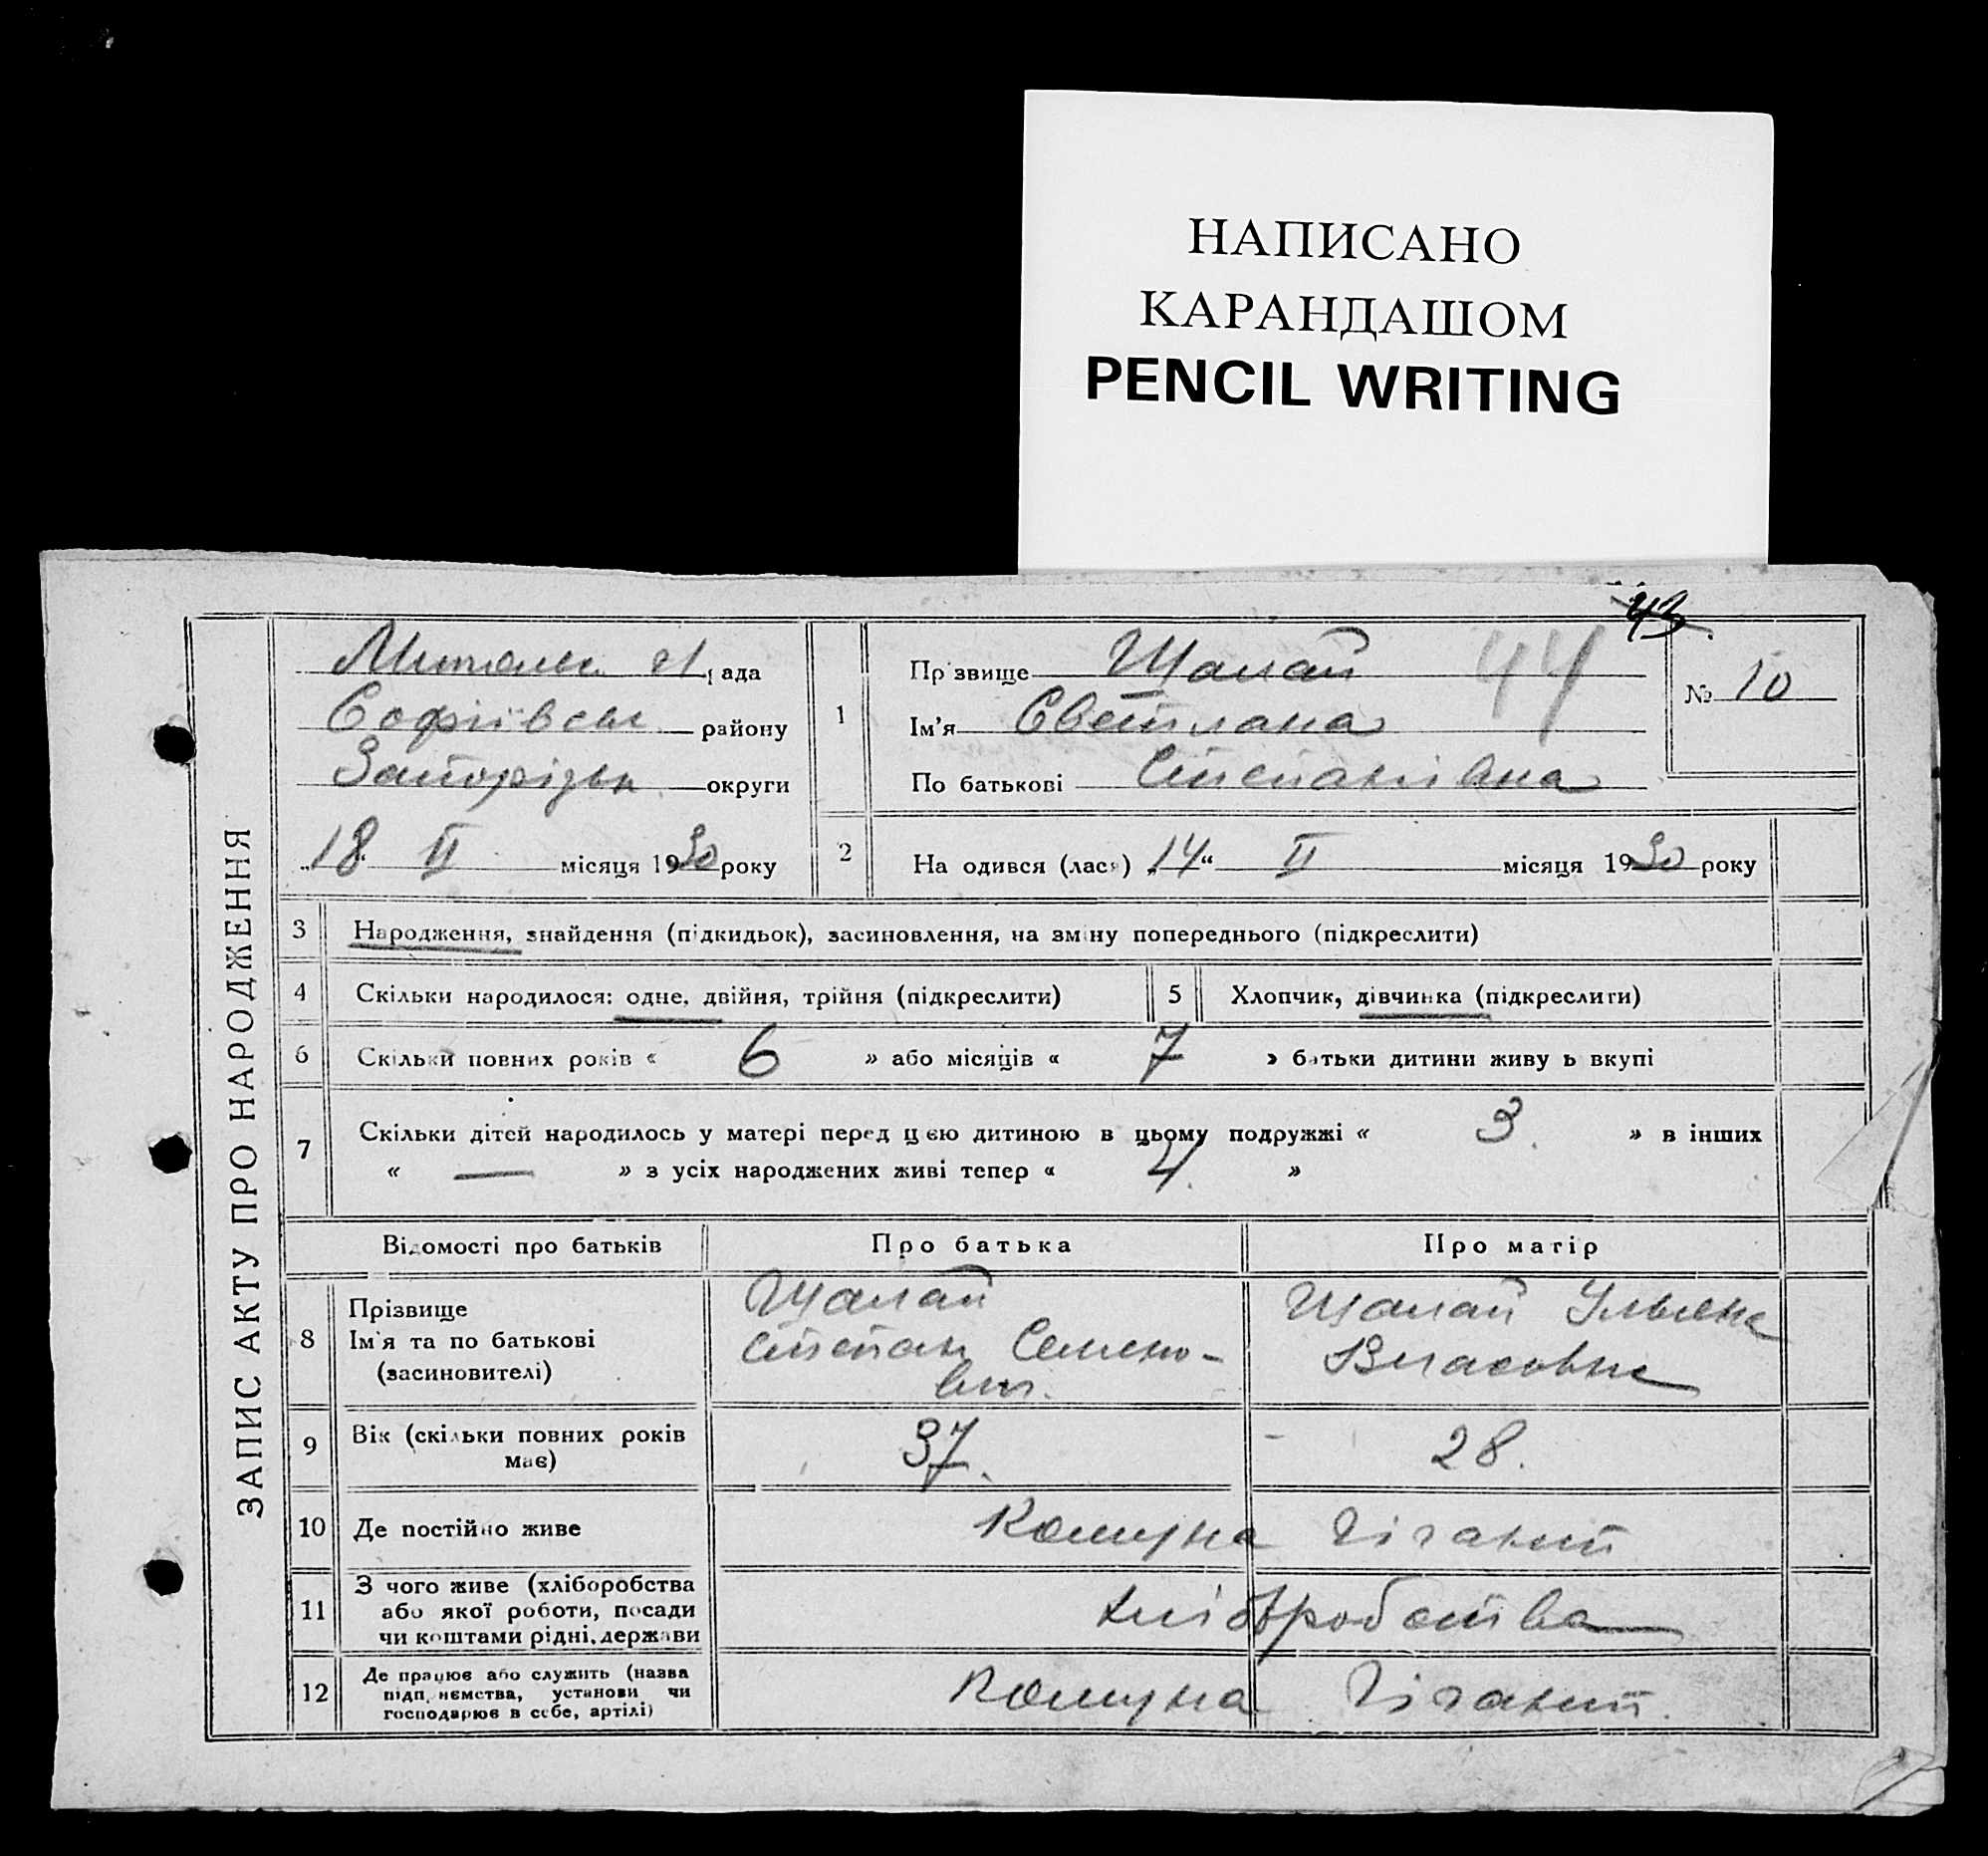 НАПИСАНО
КАРАНДАШОМ
PENCIL WRITING
43
44
ЗАПИС АКТУ ПРО НАРОДЖЕННЯ
рада
Софіївськ району
Запорізьк округи
18 II місяця 1930 року
1
Прізвище Щалай
Ім'я Светлана
По батькові Степанівна
№ 10
2 На одився (лася) „14“ II місяця 1930 року
3 Народження, знайдення (підкидьок), засиновлення, на зміну попереднього (підкреслити)
4 Скільки народилося: одне, двійня, трійня (підкреслити) 5 Хлопчик, дівчинка (підкреслити)
6 Скільки повних років « 6 » або місяців « 7 » батьки дитини живу ь вкупі
7 Скільки дітей народилось у матері перед цією дитиною в цьому подружжі « 3. » в інших
« — » з усіх народжених живі тепер « 4. »
Відомості про батьків Про батька Про матір
8 Прізвище
Ім'я та по батькові
(засиновителі)
Щалай
Степан Семено-
вич.
Щалай Ульяна
Власовна
9 Вік (скільки повних років
має)
37. 28.
10 Де постійно живе Комуна Гігант
11 З чого живе (хліборобства
або якої роботи, посади
чи коштами рідні, держави
хліборобства
12 Де працює або служить (назва
підп.иємства, установи чи
господарює в себе, артілі)
Комуна Гігант.